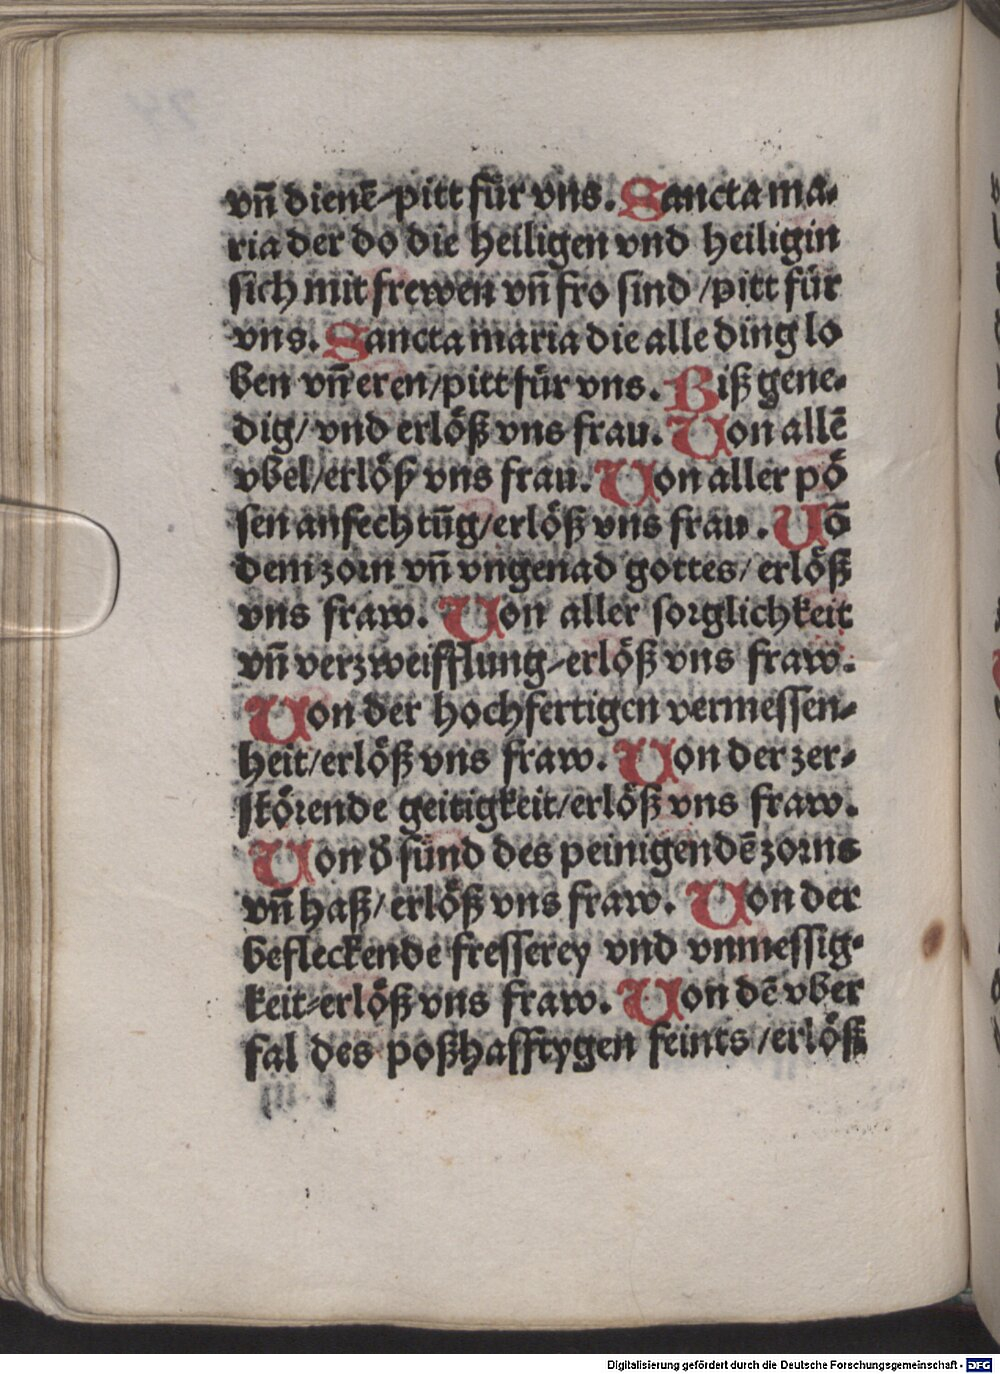 vn̄ dienē/pitt für vns. Sancta ma-
ria der do die heiligen vnd heiligin
sich mit frewen vn̄ fro sind /pitt für
vns. Sancta maria die alle ding lo
ben vn̄ eren/pitt für vns. Biß gene-
dig/ vnd erlöß vns frau. Von allē
vbel/erlöß vns frau. Von aller pö
sen anfechtūg/erlöß vns frau. Vō
dem zorn vn̄ vngenad gottes/ erlöß
vns fraw. Von aller sorglichkeit
vn̄ verzweifflung/erlöß vns fraw.
Von der hochfertigen vermessen-
heit/erlöß vns fraw. Von der zer-
störende geitigkeit/erlöß vns fraw.
Von d̄ sünd des peinigendē zorns
vn̄ haß/ erlöß vns fraw. Von der
befleckende fresserey vnd vnmessig-
keit/erlöß vns fraw. Von dē vber
fal des poßhafftygen feints /erlöß
Digitalisierung gefördert durch die Deutsche Forschungsgemeinschaft - DFG